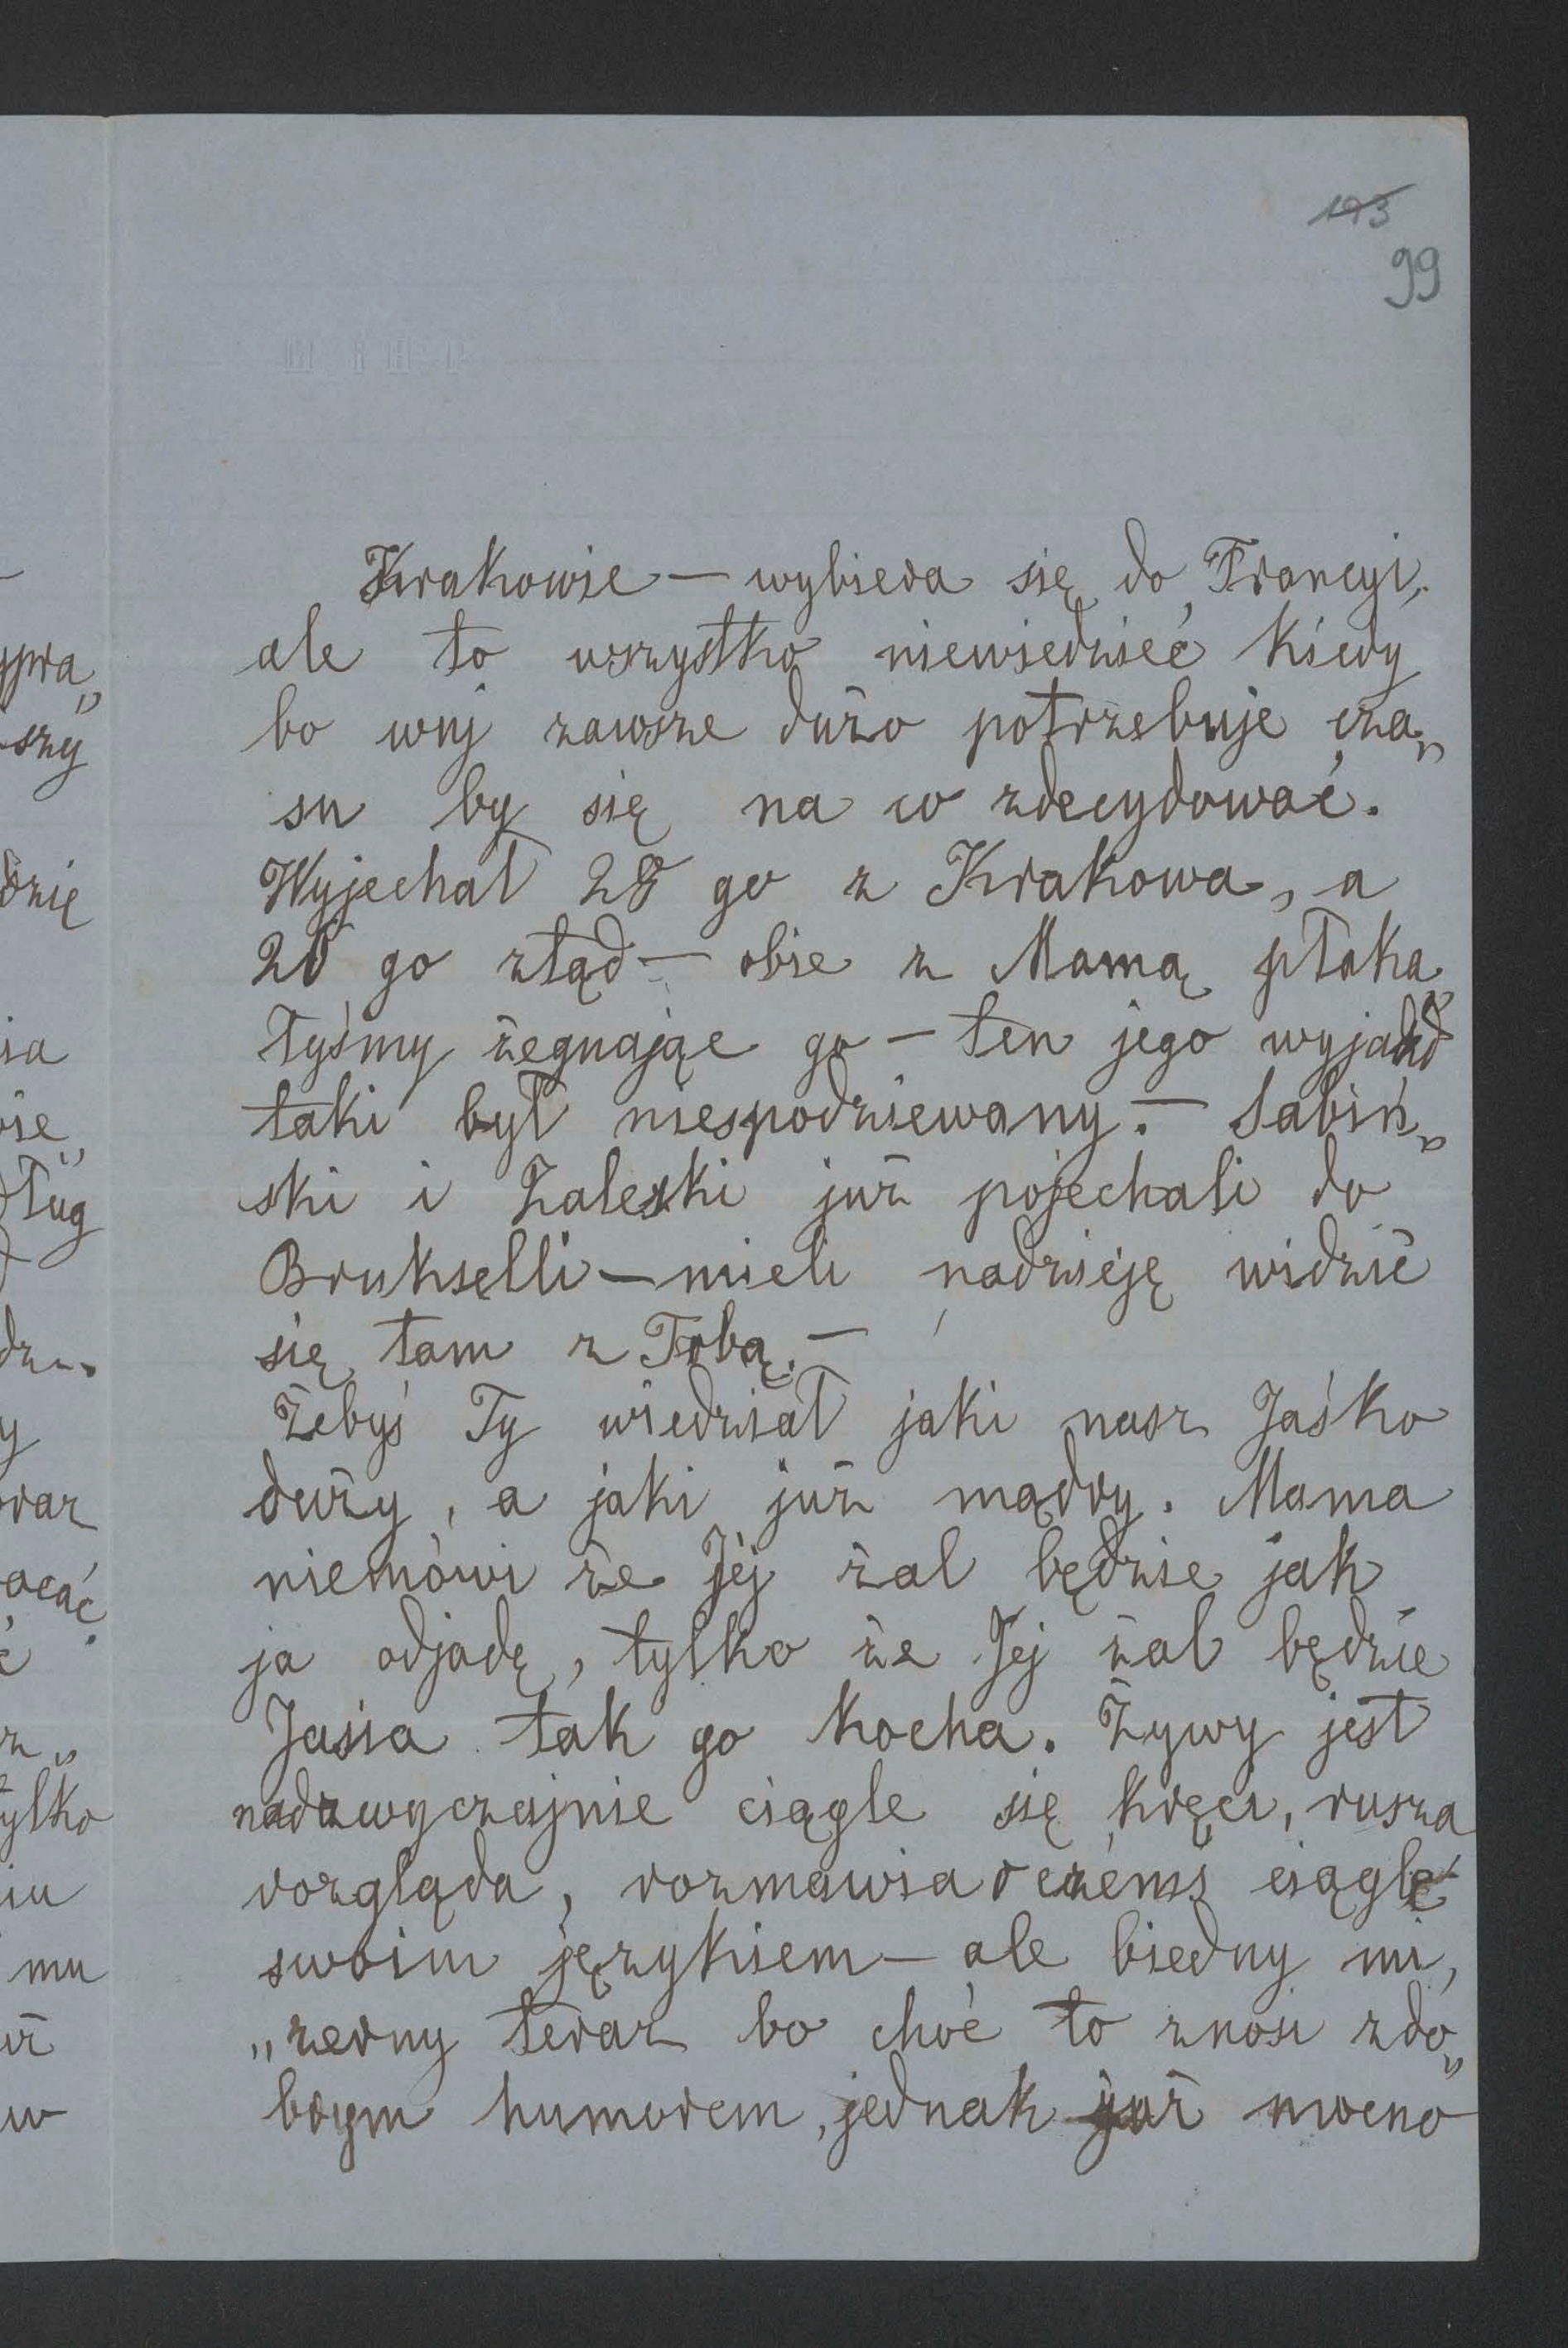 193
99
Krakowie — wybiera się do Francyi,
ale to wszystko niewiedzieć kiedy
bo wuj zawsze dużo potrzebuje cza„
su by się na co zdecydować.
Wyjechał 28 go z Krakowa, a
20 go ztąd — obie z Mamą płaka
łyśmy żegnając go — ten jego wyjazd
taki był niespodziewany. — Sabiń„
ski i Zaleski już pojechali do
Brukselli — mieli nadzieję widzić
się tam z Tobą. —
Żebyś Ty wiedział jaki nasz Jaśko
duży, a jaki już mądry. Mama
niemówi że Jéj żal będzie jak
ja odjadę, tylko że Jéj żal będzie
Jasia tak go kocha. Żywy jest
nadzwyczajnie ciągle się kręci, rusza
rozgląda, rozmawia o czémś ciągle
swoim językiem — ale biedny mi„
„zerny teraz bo choć to znosi z do„
brym humorem, jednak już mocno
ypra„
szy
dzię
ia
ług
dz
y
raz
acać
ylko
iu
mu
uż
w